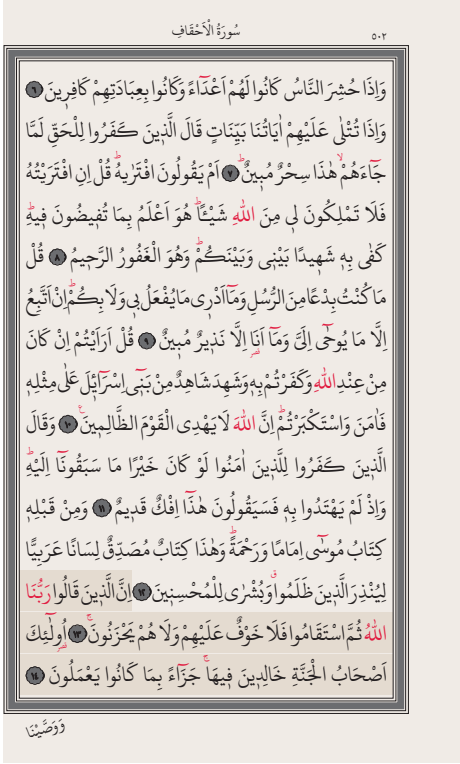 سُورَةُ الْاَحْقَافِ ٥٠٢
وَاِذَا حُشِرَ النَّاسُ كَانُوا لَهُمْ اَعْدَٓاءً وَكَانُوا بِعِبَادَتِهِمْ كَافِر۪ينَ ٦
وَاِذَا تُتْلٰى عَلَيْهِمْ اٰيَاتُنَا بَيِّنَاتٍ قَالَ الَّذ۪ينَ كَفَرُوا لِلْحَقِّ لَمَّا
جَٓاءَهُمْۙ هٰذَا سِحْرٌ مُب۪ينٌۜ ٧ اَمْ يَقُولُونَ افْتَرٰيهُۜ قُلْ اِنِ افْتَرَيْتُهُ
فَلَا تَمْلِكُونَ ل۪ي مِنَ اللّٰهِ شَيْـًٔاۜ هُوَ اَعْلَمُ بِمَا تُف۪يضُونَ ف۪يهِۜ
كَفٰى بِه۪ شَه۪يدًا بَيْن۪ي وَبَيْنَكُمْۜ وَهُوَ الْغَفُورُ الرَّح۪يمُ ٨ قُلْ
مَا كُنْتُ بِدْعًا مِنَ الرُّسُلِ وَمَٓا اَدْر۪ي مَا يُفْعَلُ ب۪ي وَلَا بِكُمْۜ اِنْ اَتَّبِعُ
اِلَّا مَا يُوحٰٓى اِلَيَّ وَمَٓا اَنَا۬ اِلَّا نَذ۪يرٌ مُب۪ينٌ ٩ قُلْ اَرَاَيْتُمْ اِنْ كَانَ
مِنْ عِنْدِ اللّٰهِ وَكَفَرْتُمْ بِه۪ وَشَهِدَ شَاهِدٌ مِنْ بَن۪ٓي اِسْرَٓائ۪لَ عَلٰى مِثْلِه۪
فَاٰمَنَ وَاسْتَكْبَرْتُمْۜ اِنَّ اللّٰهَ لَا يَهْدِي الْقَوْمَ الظَّالِم۪ينَ۟ ١٠ وَقَالَ
الَّذ۪ينَ كَفَرُوا لِلَّذ۪ينَ اٰمَنُوا لَوْ كَانَ خَيْرًا مَا سَبَقُونَٓا اِلَيْهِۜ
وَاِذْ لَمْ يَهْتَدُوا بِه۪ فَسَيَقُولُونَ هٰذَٓا اِفْكٌ قَد۪يمٌ ١١ وَمِنْ قَبْلِه۪
كِتَابُ مُوسٰٓى اِمَامًا وَرَحْمَةًۜ وَهٰذَا كِتَابٌ مُصَدِّقٌ لِسَانًا عَرَبِيًّا
لِيُنْذِرَ الَّذ۪ينَ ظَلَمُواۗ وَبُشْرٰى لِلْمُحْسِن۪ينَ ١٢ اِنَّ الَّذ۪ينَ قَالُوا رَبُّنَا
اللّٰهُ ثُمَّ اسْتَقَامُوا فَلَا خَوْفٌ عَلَيْهِمْ وَلَا هُمْ يَحْزَنُونَۚ ١٣ اُو۬لٰٓئِكَ
اَصْحَابُ الْجَنَّةِ خَالِد۪ينَ ف۪يهَاۚ جَزَٓاءً بِمَا كَانُوا يَعْمَلُونَ ١٤
وَوَصَّيْنَا